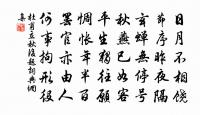 日月不相饒
節序昨夜隔
玄蟬無停號
秋燕已如客
平生獨往願
惆悵年半百
罷官亦由人
何事拘形役
杜甫立秋後題詞典網
集